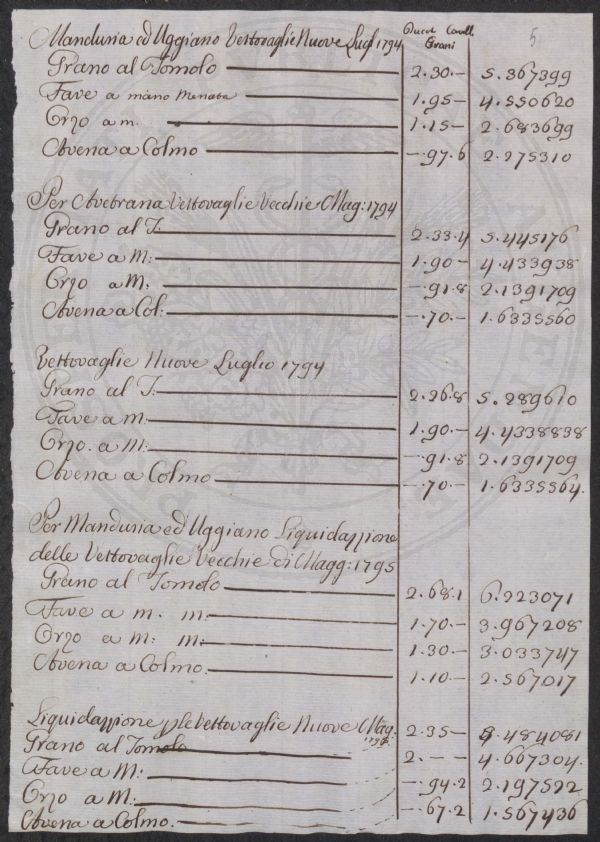 Ducti Cavll.
Manduria ed Uggiano Vettovaglie Nuove Lugl 1794 Grani 5
Grano al Tomolo 2.30.- 5.367399
Fave a mano menata 1.95- 4.550620
Orzo a m. 1.15- 2.683699
Avena a Colmo -.97.6 2.275310
Per Avetrana Vettovaglie Vecchie Mag: 1794
Grano al T. 2.33.4 5.445176
Fave a M: 1.90- 4.433938
Orzo a M: -.91.8 2.1391709
Avena a Col: -.70.- 1.6335560
Vettovaglie Nuove Luglio 1794
Grano al T. 2.26.8 5.289610
Fave a m: 1.90.- 4.4338838
Orzo. a m: -.91.8 2.1391709
Avena a Colmo -.70- 1.6335564.
Per Manduria ed Uggiano Liquidazzione
delle Vettovaglie Vecchie di Magg: 1795
Grano al Tomolo 2.68.1 6.223071
Fave a m. m: 1.70.- 3.967208
Orzo a m: m: 1.30.- 3.033747
Avena a Colmo. 1.10- 2.567017
Liquidazzione p le Vettovaglie Nuove Mag. 2.35- 5.484081
Grano al Tomolo 2.-- 4.667304.
Fave a M: -.94.2 2.197522
Orzo a M: -.67.2 1.567436
Avena a Colmo.